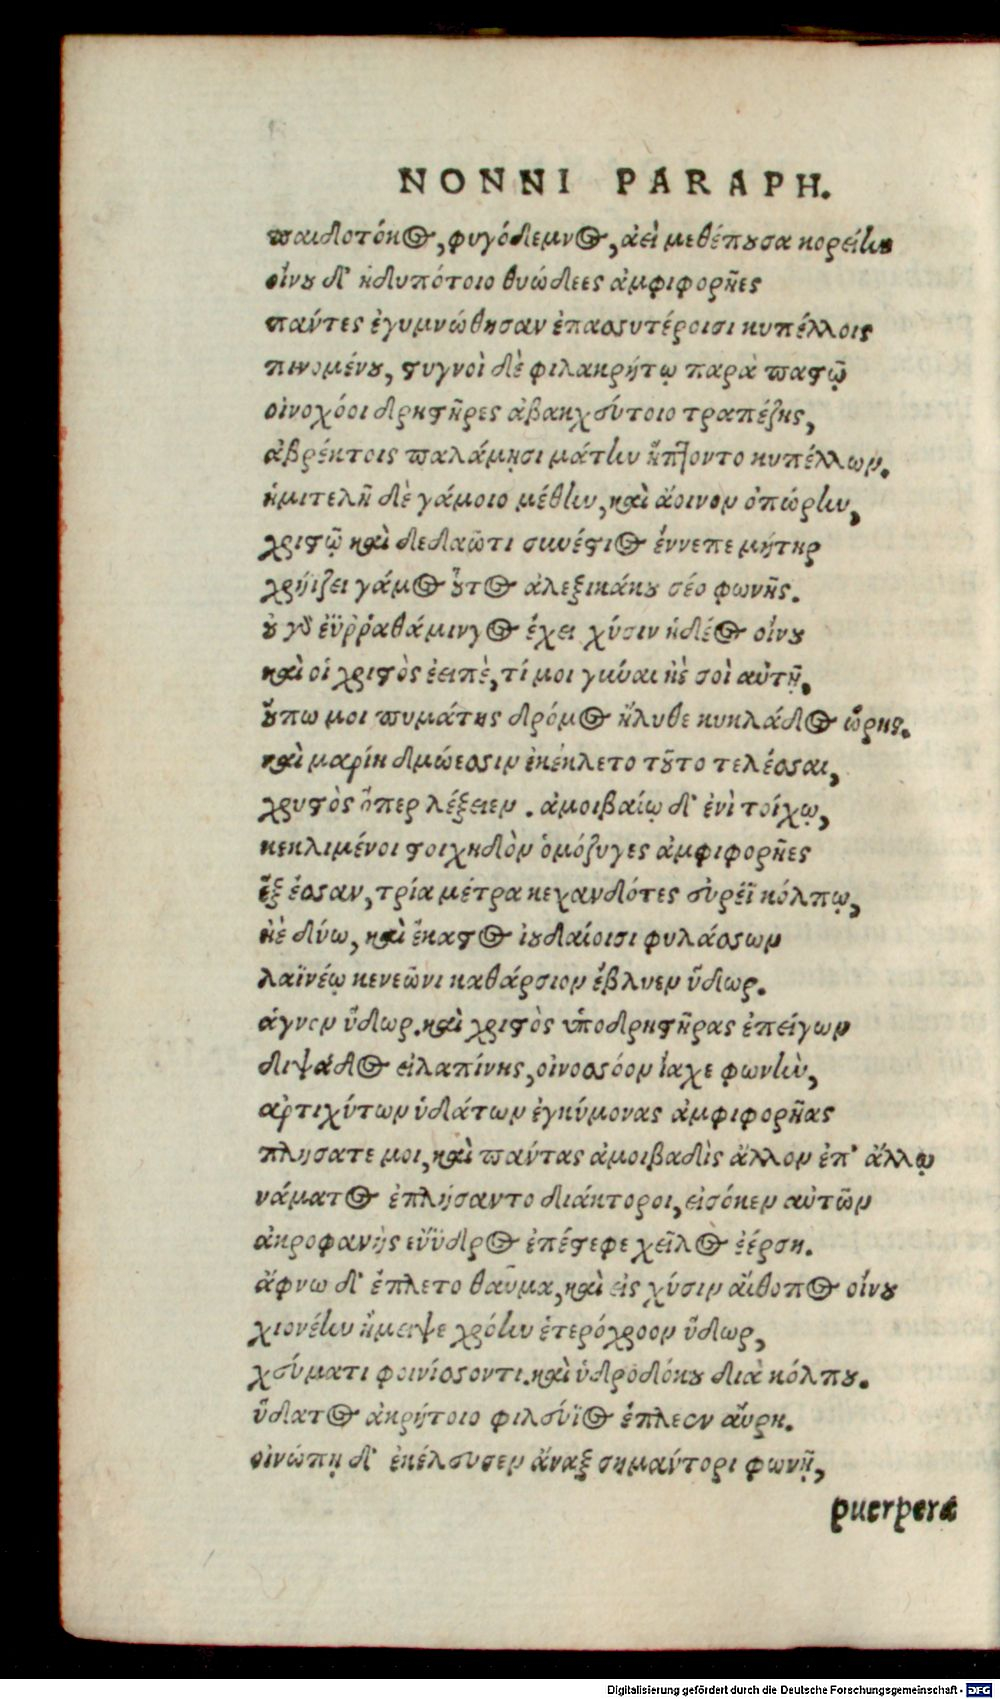 NONNI PARAPH.
παιδοτόκος, φυγόδεμνος, ἀεὶ μεθέπουσα κορείην
οἴνου δ' ἡδυπότοιο θυώδεες ἀμφιφορῆες
πάντες ἐγυμνώθησαν ἐπασσυτέροισι κυπέλλοις
πινομένου, στυγνοὶ δὲ φιλακρήτῳ παρὰ παστῷ
οἰνοχόοι δρηστῆρες ἀβακχεύτοιο τραπέζης,
ἀβρέκτοις παλάμῃσι μάτην ἥπτοντο κυπέλλων.
ἡμιτελῆ δὲ γάμοιο μέθην, καὶ ἄοινον ὀπώρην,
χριστῷ καὶ δεδαῶτι συνέστιος ἔννεπε μήτηρ
χρήιζει γάμος οὗτος ἀλεξικάκου σέο φωνῆς.
οὐ γὰρ ἐϋῤῥαθάμινγος ἔχει χύσιν ἡδέος οἴνου
καὶ οἱ χριστὸς ἔειπε, τί μοι γύναι ἠὲ σοὶ αὐτῇ.
οὔπω μοι πυμάτης δρόμος ἤλυθε κυκλάδος ὥρης.
καὶ μαρίη δμώεσσιν ἐκέκλετο τοῦτο τελέσσαι,
χρυστὸς ὅπερ λέξειεν. ἀμοιβαίῳ δ' ἐνὶ τοίχῳ,
κεκλιμένοι στοιχηδὸν ὁμόζυγες ἀμφιφορῆες
ἓξ ἔσσαν, τρία μέτρα κεχανδότες εὐρέϊ κόλπῳ,
ἠὲ δύω, καὶ ἕκαστος ἰουδαίοισι φυλάσσων
λαϊνέῳ κενεῶνι καθάρσιον ἔβλυεν ὕδωρ.
ἁγνὸν ὕδωρ. καὶ χριστὸς ὑποδρηστῆρας ἐπείγων
διψάδος εἰλαπίνης, οἰνοσσόον ἴαχε φωνὴν,
ἀρτιχύτων ὑδάτων ἐγκύμονας ἀμφιφορῆας
πλήσατε μοι, καὶ πάντας ἀμοιβαδὶς ἄλλον ἐπ' ἄλλῳ
νάματος ἐπλήσαντο διάκτοροι, εἰσόκεν αὐτῶν
ἀκροφανὴς εὔϋδρος ἐπέστεφε χεῖλος ἐέρση.
ἄφνω δ' ἔπλετο θαῦμα, καὶ εἰς χύσιν αἴθοπος οἴνου
χιονέην ἤμειψε χρόην ἑτερόχροον ὕδωρ,
χεύματι φοινίσσοντι. καὶ ὑδροδόκου διὰ κόλπου.
ὕδατος ἀκρήτοιο φιλεύϊος ἔπλεον αὖρη.
οἰνώπῃ δ' ἐκέλευσεν ἄναξ σημάντορι φωνῇ,
puerpera
Digitalisierung gefördert durch die Deutsche Forschungsgemeinschaft - DFG